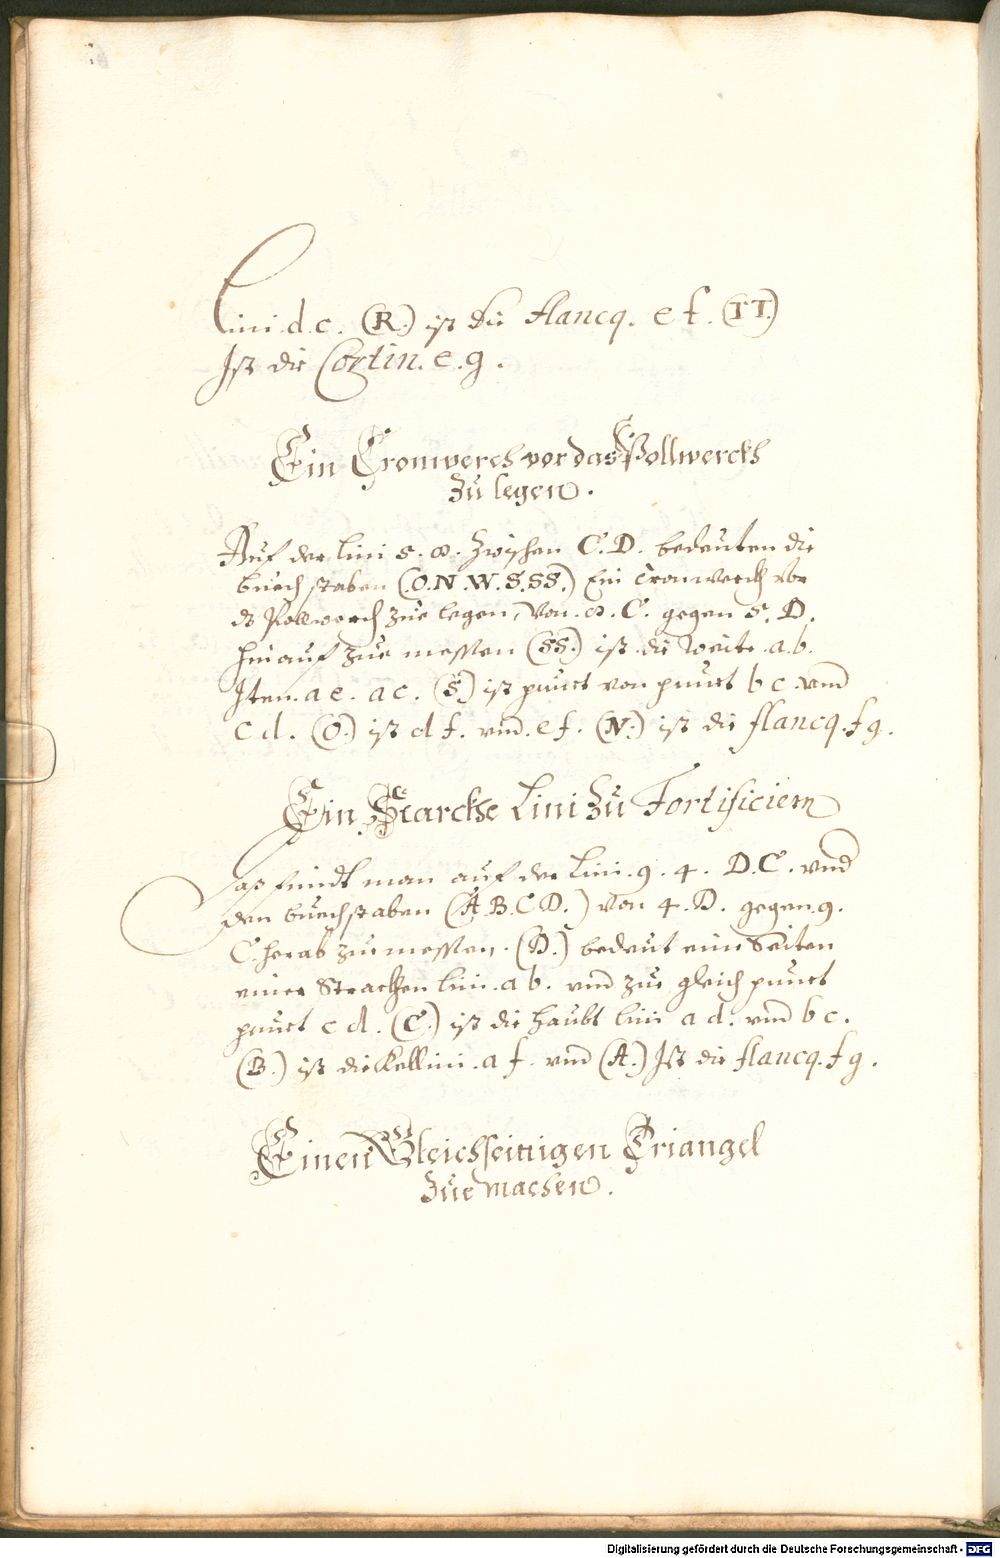 Lini. d. c. (R.) ist die flancq. e f. (TT.)
Ist die Cortin. e. g.
Ein Cronwerch vor das Pollwerckh
zu legen.
Auf der Lini 5. 8. zwischen C. D. bedeuten die
buechstaben (.O. N. W. S. SS.) Ein Cronwerch vor
ds Pollwerch zue legen, von. 8. C. gegen 5. D.
hinauf zue messen (SS.) ist die weite. a. b.
Item. a e. a c. (S.) ist punct von punct b c. vnd
c d. (O.) ist d f. vnd. e f. (N.) ist die flancq. f g.
Ein Starckhe Lini zu Fortificiern
Das findt man auf der Lini. 9. 4. D. C. vnd
den buechstaben (A. B. C. D.) von 4. D. gegen. 9.
C. herab zue messen. (D.) bedeut ein Seiten
einer Starcken lini. a b. vnd zue gleich punct
punct c d. (C.) ist die haubt lini a d. vnd b c.
(B.) ist die Kellini. a f. vnd (A.) Ist die flancq. f g.
Einen Gleichseittigen Triangel
zue machen.
Digitalisierung gefördert durch die Deutsche Forschungsgemeinschaft - DFG